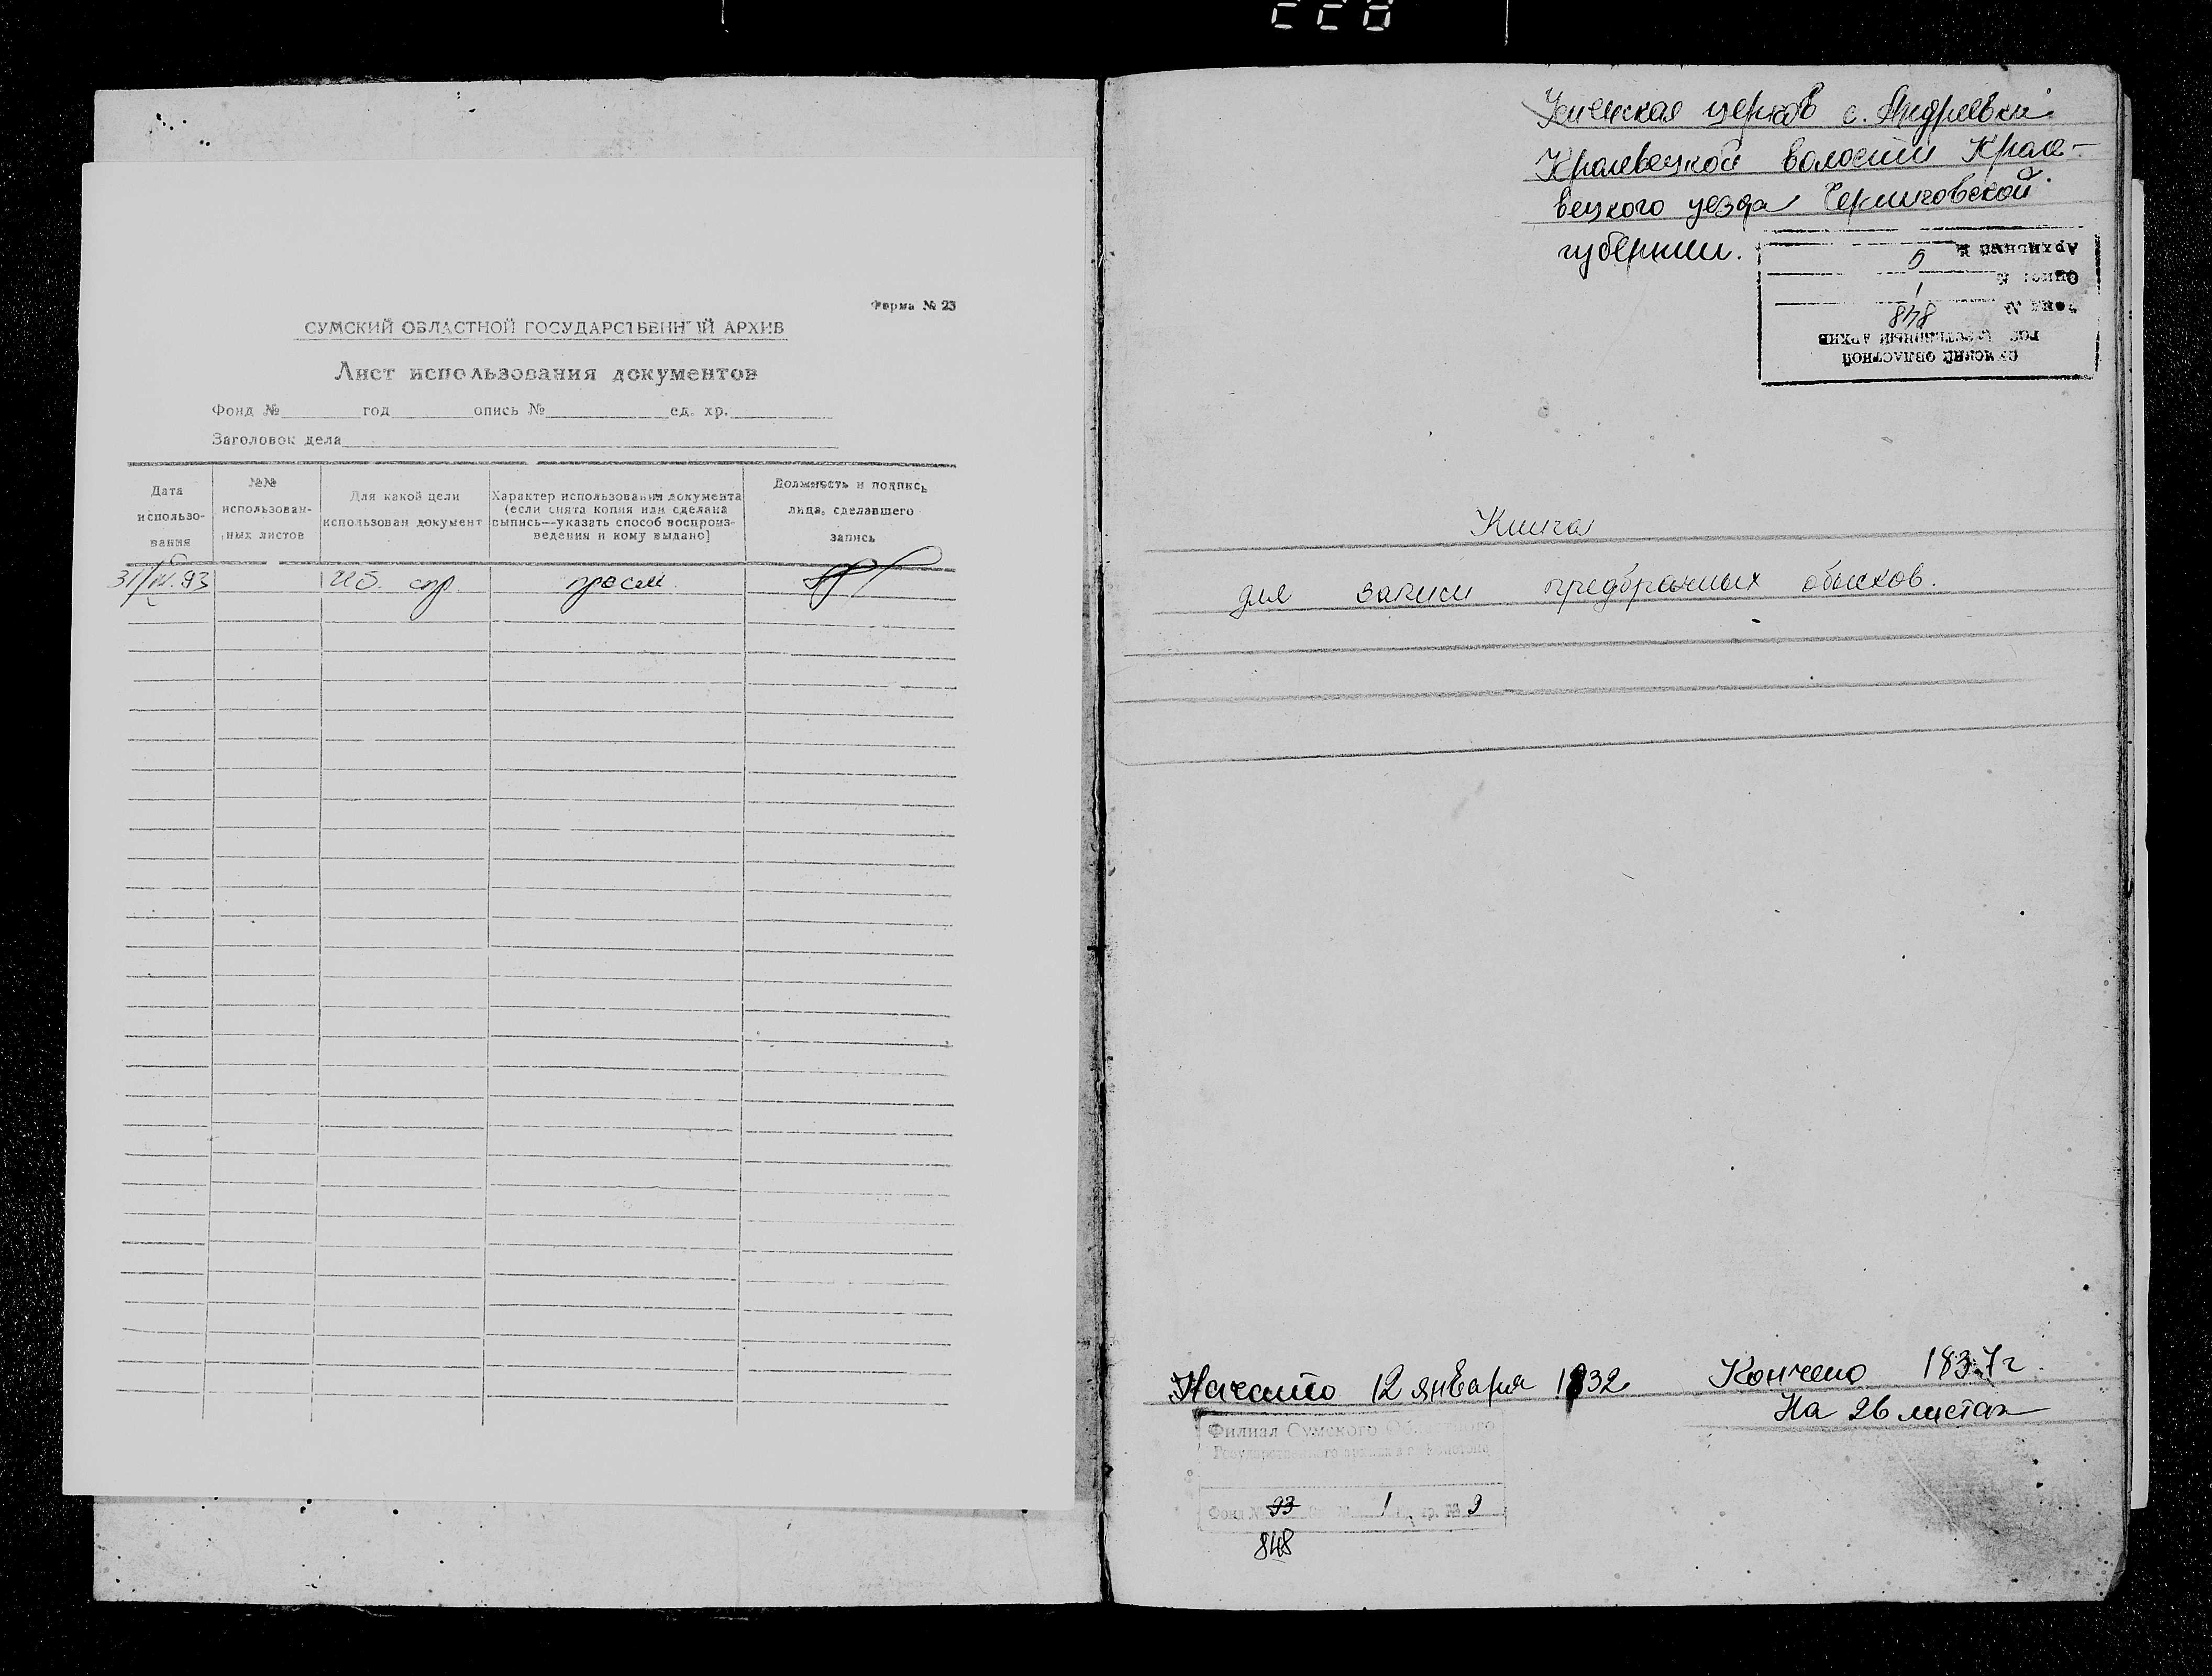 Форма № 23
СУМСКИЙ ОБЛАСТНОЙ ГОСУДАРСТВЕННЫЙ АРХИВ
Лист использования документов
Фонд № год опись № ед. хр.
Заголовок дела
Дата использо- вания
№№ использован- ных листов
Для какой цели использован документ
Характер использования документа
(если снята копия или сделана
выпись—указать способ воспроиз-
ведения и кому выдано)
Должность и подпись
лица, сделавшего
запись
просм.
церковь с. Андреевки
Кролевецкой волости Кроле-
вецкого уезда Черниговской
губернии.
СУМСКИЙ ОБЛАСТНОЙ
ГОСУДАРСТВЕННЫЙ АРХИВ
Фонд № 848
Опись № 1
Архивный №
Книга
для записи предбрачных обысков.
Начато 12 января 1832
Кончено 1837г.
На 26 листах
Филиал Сумского Областного
Государственного архива в г. Конотопе
Фонд № 93 1 хр. № 9
848